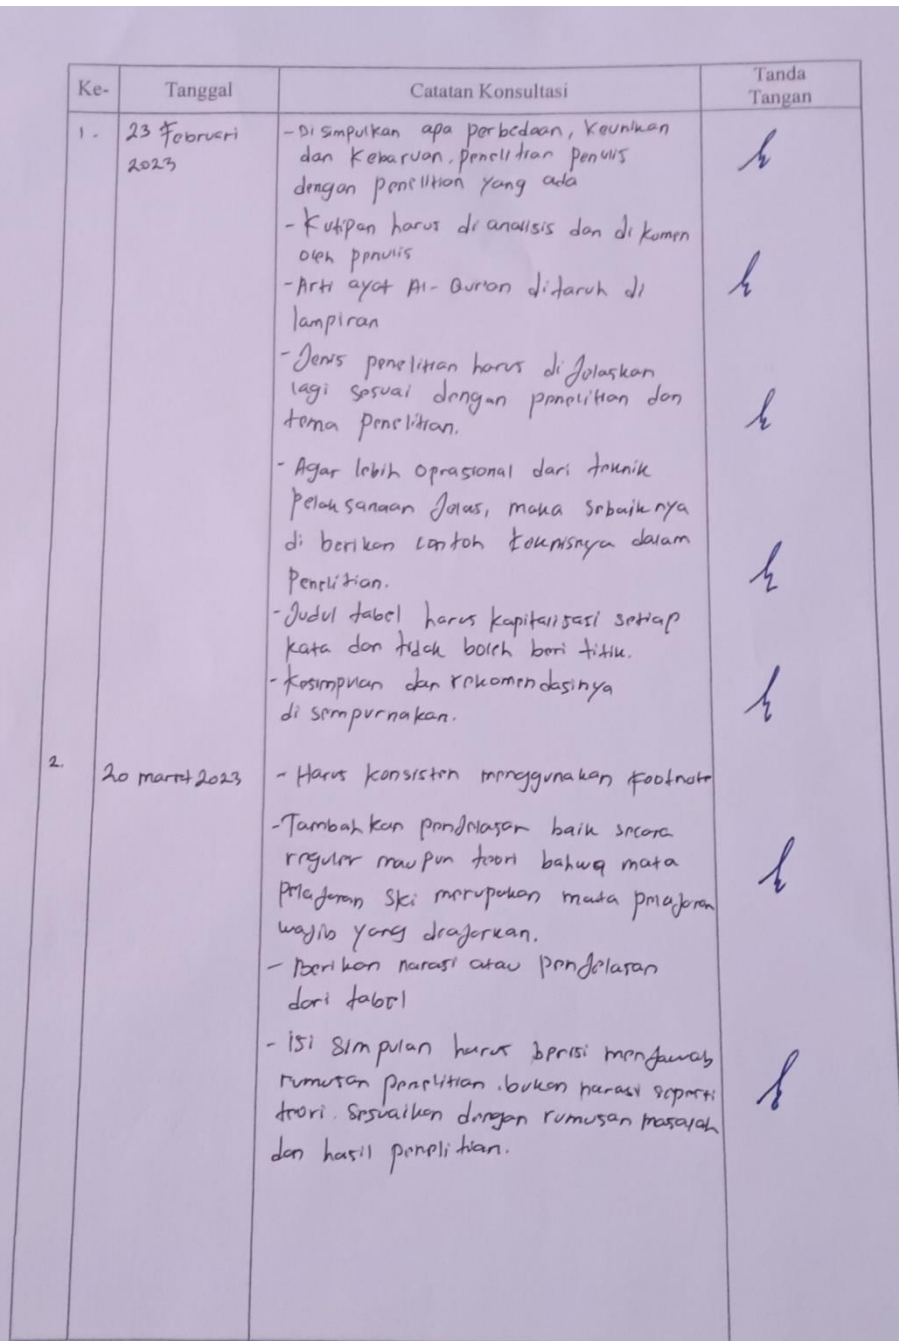 Ke- Tanggal Catatan Konsultasi Tanda Tangan
1. 23 Februari 2023
- Disimpulkan apa perbedaan, keunikan
dan kebaruan, penelitian penulis
dengan penelition yang ada
- Kutipan harus di analisis dan di komen
oleh penulis
- Arti ayat Al-Qur'an ditaruh di
lampiran
- Jenis penelitian harus di jelaskan
lagi sesuai dengan penelitian dan
tema penelitian.
- Agar lebih oprasional dari teknik
pelaksanaan jelas, maka sebaiknya
di berikan contoh teknisnya dalam
penelitian.
- Judul tabel harus kapitalisasi setiap
kata dan tidak boleh beri titik.
- Kesimpulan dan rekomendasinya
di sempurnakan.
2. 20 maret 2023
- Harus konsisten menggunakan footnote
- Tambahkan penjelasan baik secara
reguler maupun teori bahwa mata
pelajaran Ski merupakan mata pelajaran
wajib yang diajarkan.
- Berikan narasi atau penjelasan
dari tabel
- isi simpulan harus berisi menjawab
rumusan penelitian. bukan narasi seperti
teori. Sesuaikan dengan rumusan masalah
dan hasil penelitian.